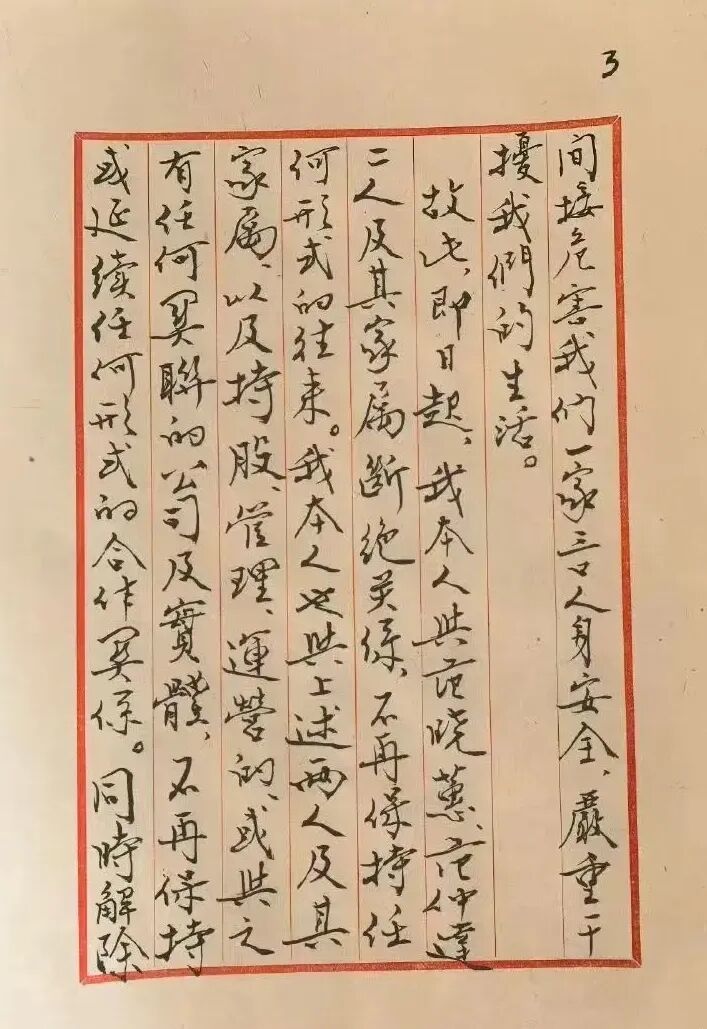 3
间接危害我们一家三口人身安全、嚴重干
擾我們的生活。
故此，即日起，我本人與范晓蕙、范仲達
二人及其家属断绝关係、不再保持任
何形式的往来。我本人也與上述两人及其
家属、以及持股、管理、運營的、或與之
有任何関聯的公司及實體、不再保持
或延續任何形式的合作関係。同時解除